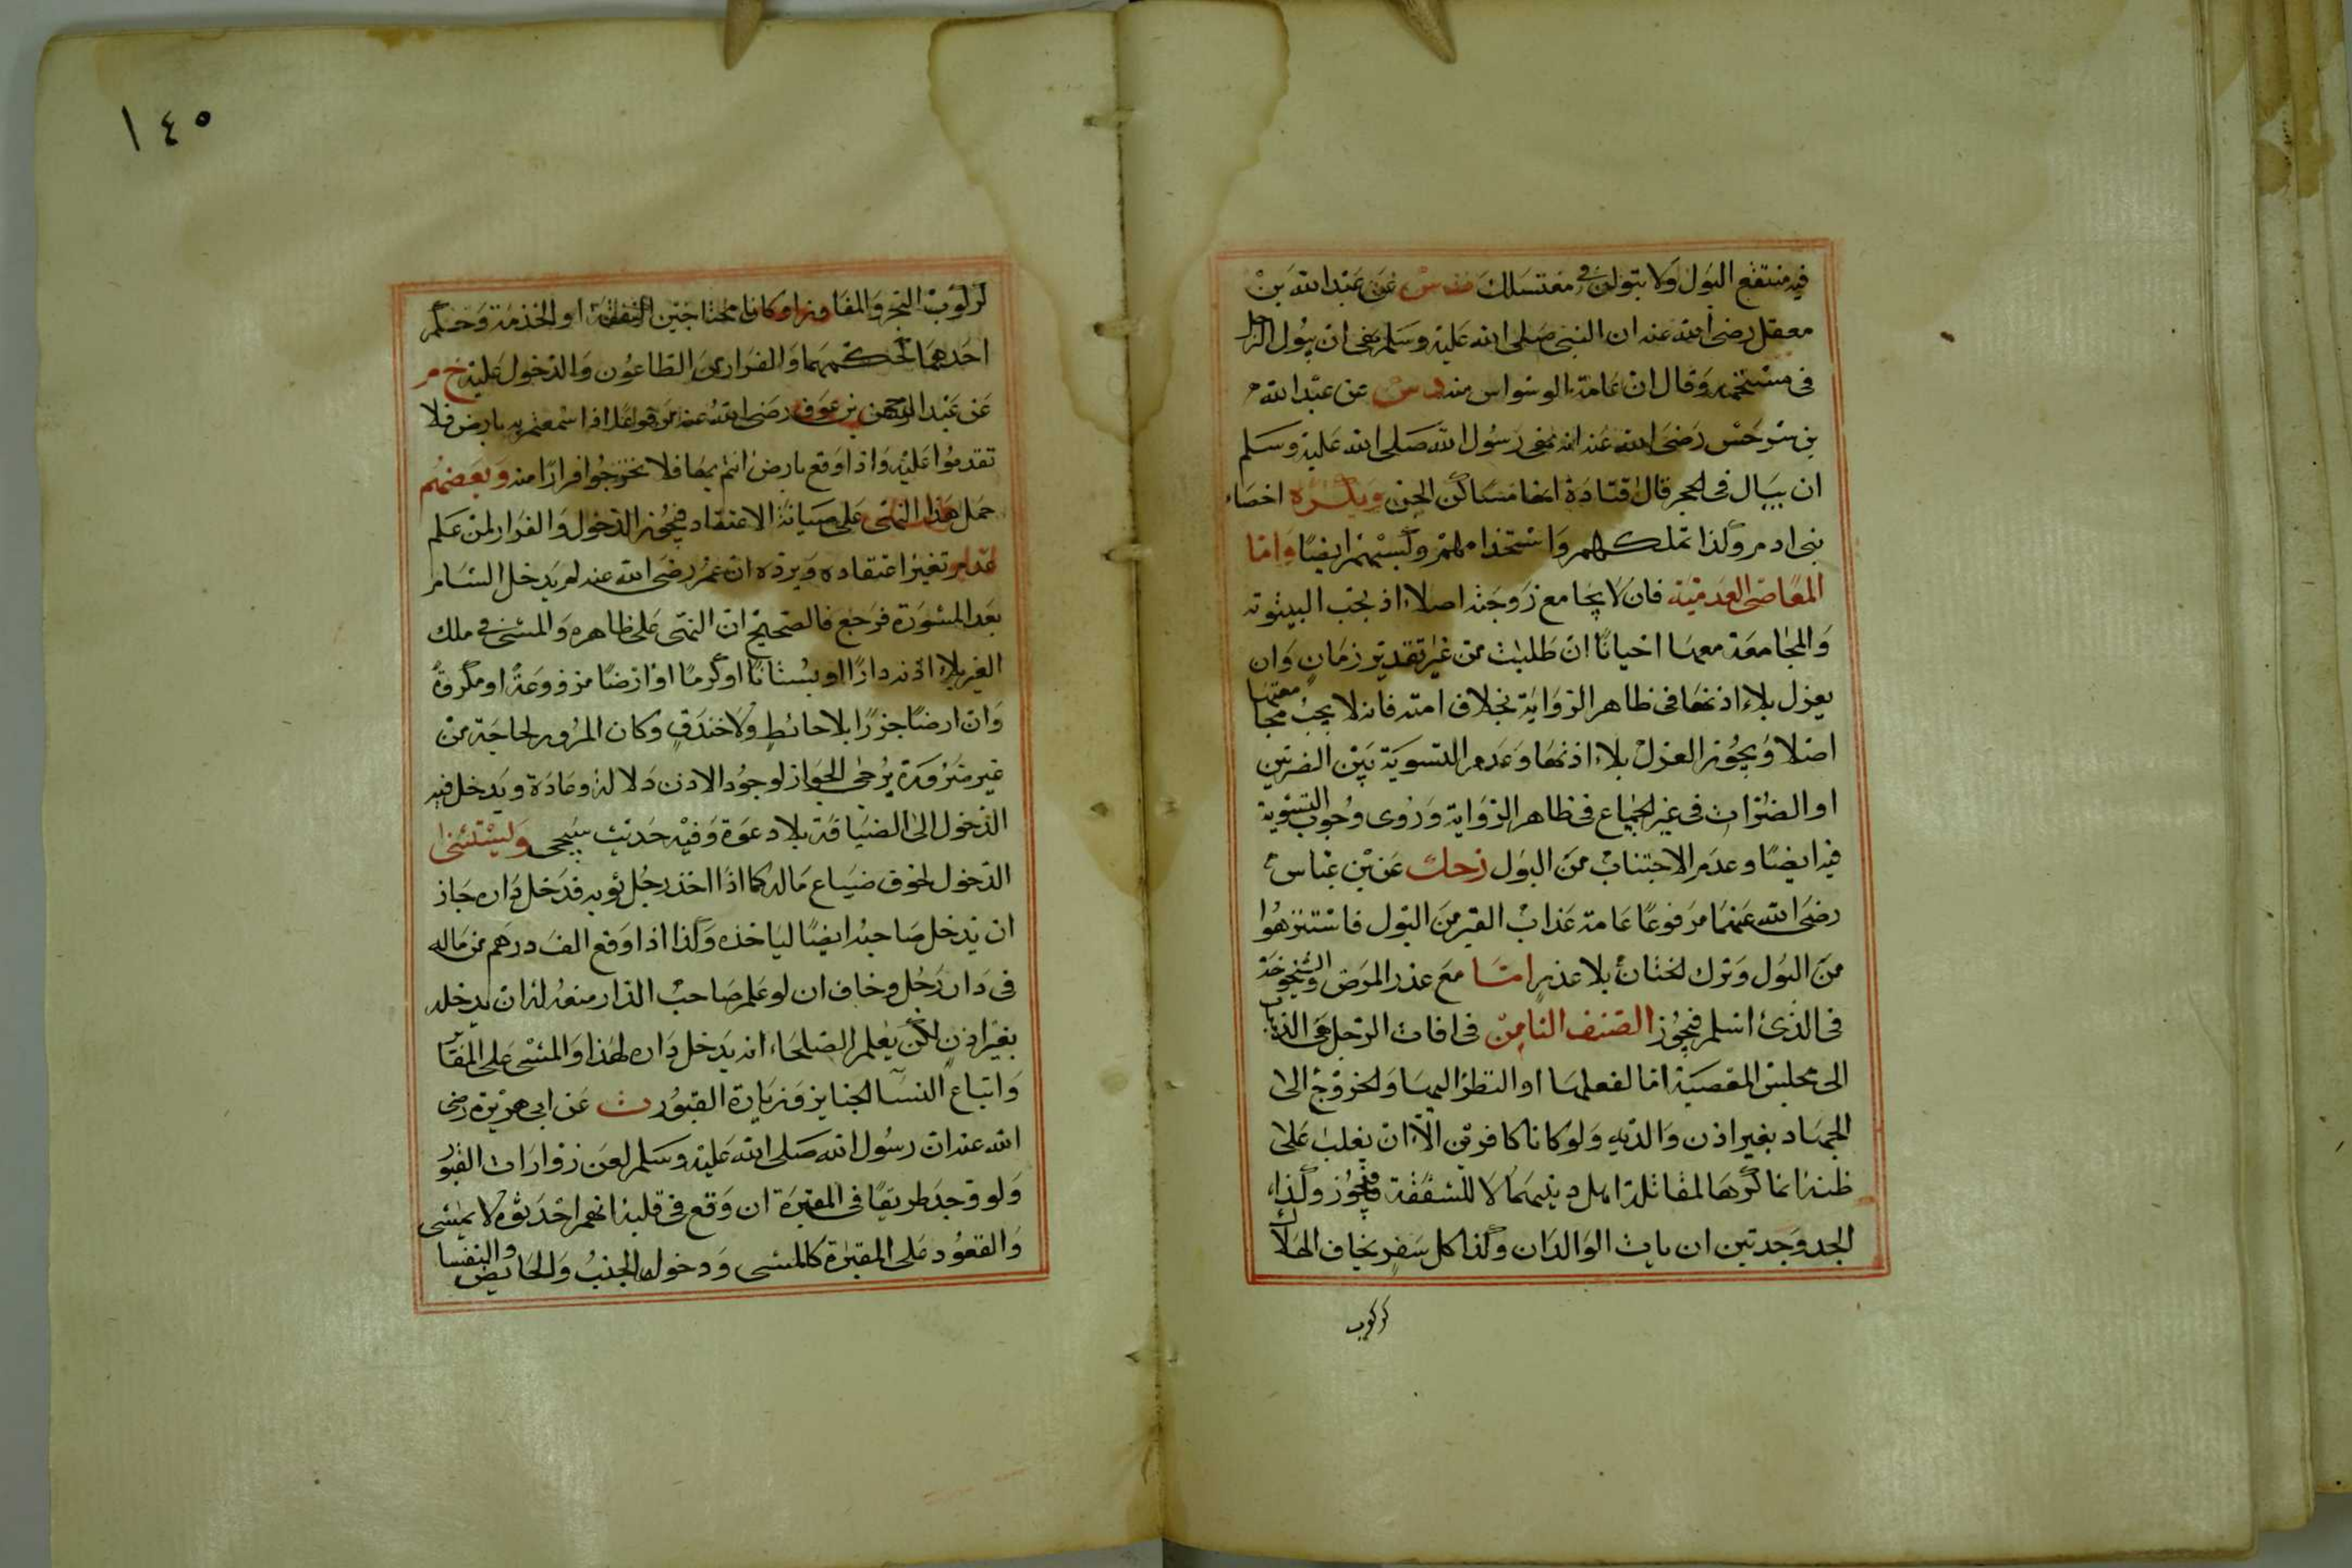 فيه منتقع البول ولا تبولن في مغتسلك عن عبد الله بن
معقل رضى الله عنه ان النبي صلى الله عليه وسلم نهى ان يبول الرجل
فى مستحمه وقال ان عامة الوسواس منه د س عن عبد الله
بن سرجس رضى الله عنه انه نهى رسول الله صلى الله عليه وسلم
ان يبال فى الجحر قال قتادة انها مساكن الجن ويكره اخصاء
بنى ادم وكذا تملكهم واستخدامهم وكسبهم ايضا واما
المعاصى العدمية فان لا يجامع زوجته اصلا اذ يجب البيتوته
والمجامعة معها احيانا ان طلبت من غير تقدير زمان وان
يعزل بلا اذنها فى ظاهر الرواية بخلاف امته فانه لا يجب مجامعتها
اصلا ويجوز العزل بلا اذنها وعدم التسوية بين الضرتين
او الضرات فى غير الجماع فى ظاهر الرواية وروى وجوب التسوية
فيه ايضا وعدم الاجتناب من البول زحك عن بن عباس
رضى الله عنهما مرفوعا عامة عذاب القبر من البول فاستنزهوا
من البول وترك الختان بلا عذر اما مع عذر المرض والشيخوخة
فى الذى اسلم فيجوز الصنف الثامن فى افات الرجل هى الذهاب
الى مجلس المعصية اما لفعلها او النظر اليها والخروج الى
الجهاد بغير اذن والديه ولو كانا كافرين الا ان يغلب على
ظنه انما كرها لمقاتلة اهل دينهما لا للشفقة فيجوز وكذا
الجد وجدتين ان مات الوالدان وكذا كل سفر يخاف الهلاك
كركوب
١٤٥
كركوب البحر والمفاوز او كانا محتاجين النفقة او الخدمة وحكم
احدهما كحكمهما والفرار من الطاعون والدخول عليه خ م
عن عبد الرحمن بن عوف رضى الله عنه مرفوعا اذا سمعتم به بارض فلا
تقدموا عليه واذا وقع بارض انتم بها فلا تخرجوا فرارا منه وبعضهم
حمل هذا النهى على صيانة الاعتقاد فيجوز الدخول والفرار لمن علم
عدم تغير اعتقاده ويرده ان عمر رضى الله عنه لم يدخل الشام
بعد المشورة فرجع فالصحيح ان النهى على ظاهره والمشى فى ملك
الغير بلا اذنه دارا او بستانا او كرما او ارضا مزروعة او مكروبة
وان ارضا جزرا بلا حائط ولا خندق وكان المرور لحاجة من
غير ضرورة يرجى الجواز لوجود الاذن دلالة وعادة ويدخل فيه
الدخول الى الضيافة بلا دعوة وفيه حديث سيجى وليستثنى
الدخول لخوف ضياع ماله كما اذا اخذ رجل ثوبه فدخل داره جاز
ان يدخل صاحبه ايضا ليأخذه وكذا اذا وقع الف درهم من ماله
فى دار رجل وخاف ان لو علم صاحب الدار منعه له ان يدخله
بغير اذن لكن يعلم الصلحاء انه يدخل داره لهذا والمشى على المقابر
واتباع النساء الجنايز وزيارة القبور ت عن ابى هريرة رضى
الله عنه ان رسول الله صلى الله عليه وسلم لعن زوارات القبور
ولو وجد طريقا فى المقبرة ان وقع فى قلبه انهم احدثوه لا يمشى
والقعود على المقبرة كالمشى ودخول الجنب والحائض والنفسا